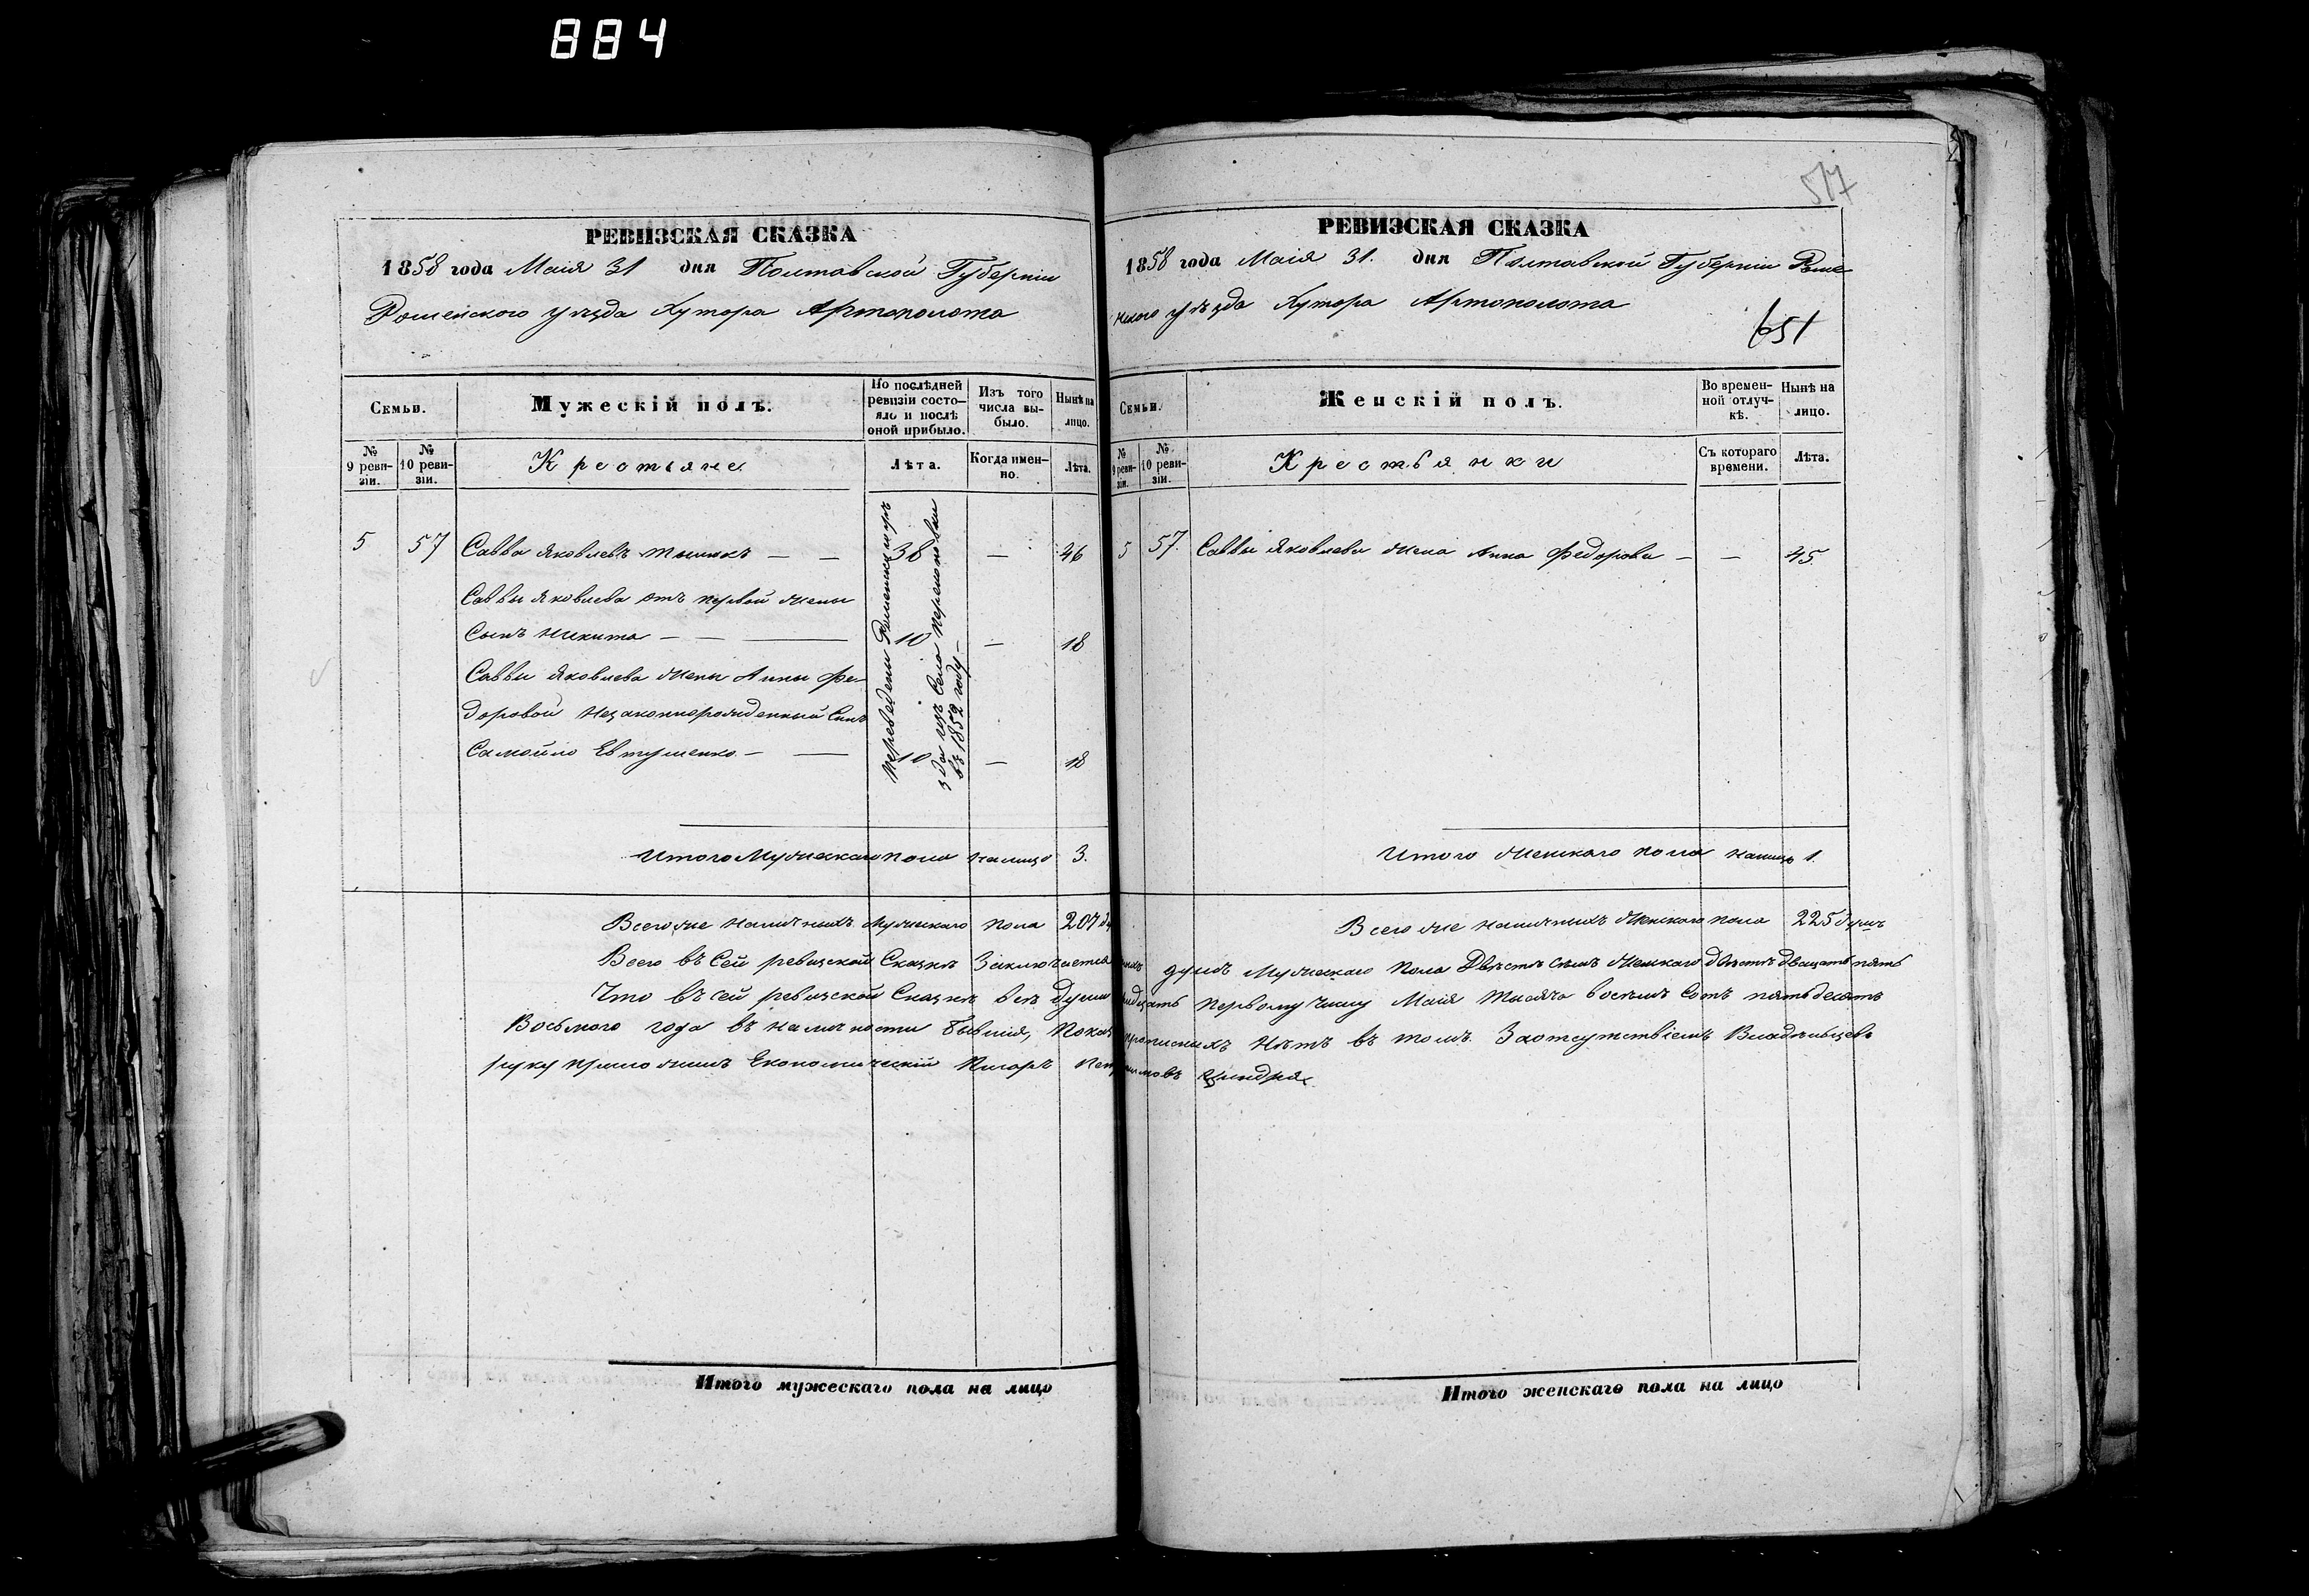 884
РЕВИЗСКАЯ СКАЗКА
1858 года Маія 31 дня Полтавской Губерніи
Роменского уѣзда Хутора Артополота
Семьи.
Мужескій полъ.
По послѣдней ревизіи состояло и послѣ оной прибыло.
Изъ того числа выбыло.
Нынѣ на лицо.
№ 9 ревизіи.
№ 10 ревизіи.
Крестьяне
Лѣта.
Когда именно.
Лѣта.
5 57 Савва Яковлевъ — — 38 — 46
Саввы Яковлева отъ первой жены
Сынъ Никита — — — 10 — 18
Саввы Яковлева жены Анны Фе-
доровой незаконнорожденный Сынъ
Самойло Евтушенко — — 10 — 18
переведены
изъ Села
въ 1852 году —
Итого Мужескаго пола налицо 3.
Всего же наличныхъ Мужескаго пола 207
Всего въ Сей ревизской Сказкѣ Заключается
Что въ сей ревизской Сказкѣ всѣ души
Восьмого года въ наличности бывшія,
руку приложилъ Економическій Писарь
Итого мужескаго пола на лицо
517
РЕВИЗСКАЯ СКАЗКА
1858 года Маія 31. дня Полтавской Губерніи Роме-
нского уѣзда Хутора Артополота
651
Семьи.
Женскій полъ.
Во временной отлучкѣ.
Нынѣ на лицо.
№ 9 ревизіи.
№ 10 ревизіи.
Крестьянки
Съ котораго времени.
Лѣта.
5 57. Саввы Яковлева жена Анна Федорова — — 45.
Итого женскаго пола налицо 1.
Всего же наличныхъ Женскаго пола 225 душъ
душъ Мужескаго пола Двѣстѣ семь женскаго двѣстѣ двацать пять
первому числу Маія тысяча восемь Сотъ пятьдесятъ
прописныхъ нѣтъ въ томъ. За отсутствіемъ Владѣльцевъ
Итого женскаго пола на лицо